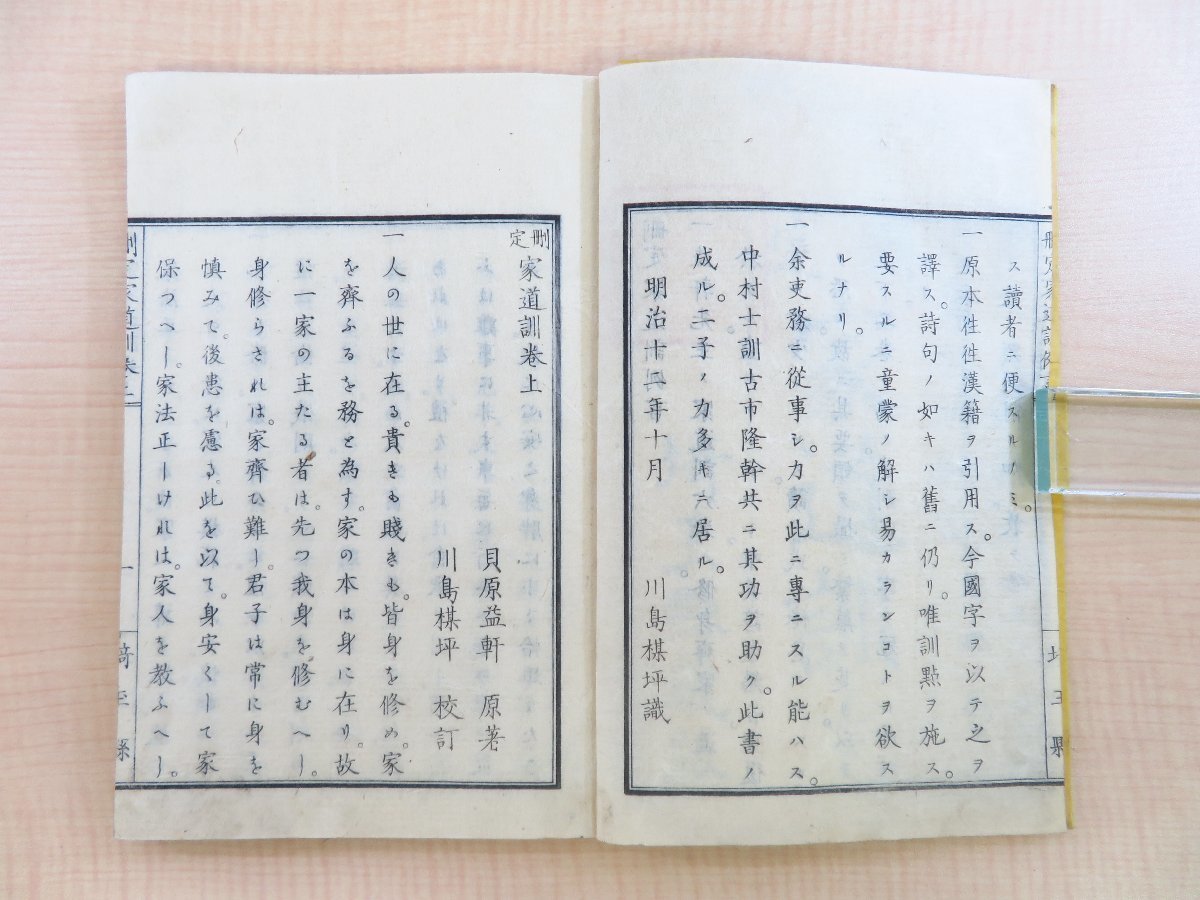 ス讀者ニ便スルノミ。
一原本徃徃漢籍ヲ引用ス。今國字ヲ以テ之ヲ
譯ス。詩句ノ如キハ舊ニ仍リ。唯訓點ヲ施ス。
要スルニ童蒙ノ解シ易カランコトヲ欲ス
ルナリ。
一余吏務ニ從事シ。力ヲ此ニ專ニスル能ハス。
中村士訓古市隆幹共ニ其功ヲ助ク。此書ノ
成ル。二子ノ力多キニ居ル。
明治十二年十月 川島楳坪識
刪定 家道訓卷上
貝原益軒 原著
川島楳坪 校訂
一人の世に在る。貴きも賤きも。皆身を修め。家
を齊ふるを務と為す。家の本は身に在り。故
に一家の主たる者は。先つ我身を修むへし。
身修らされは。家齊ひ難し。君子は常に身を
慎みて。後患を慮る。此を以て。身安くして家
保つへし。家法正しけれは。家人を教ふへし。
刪定家道訓卷之上 一 埼玉縣